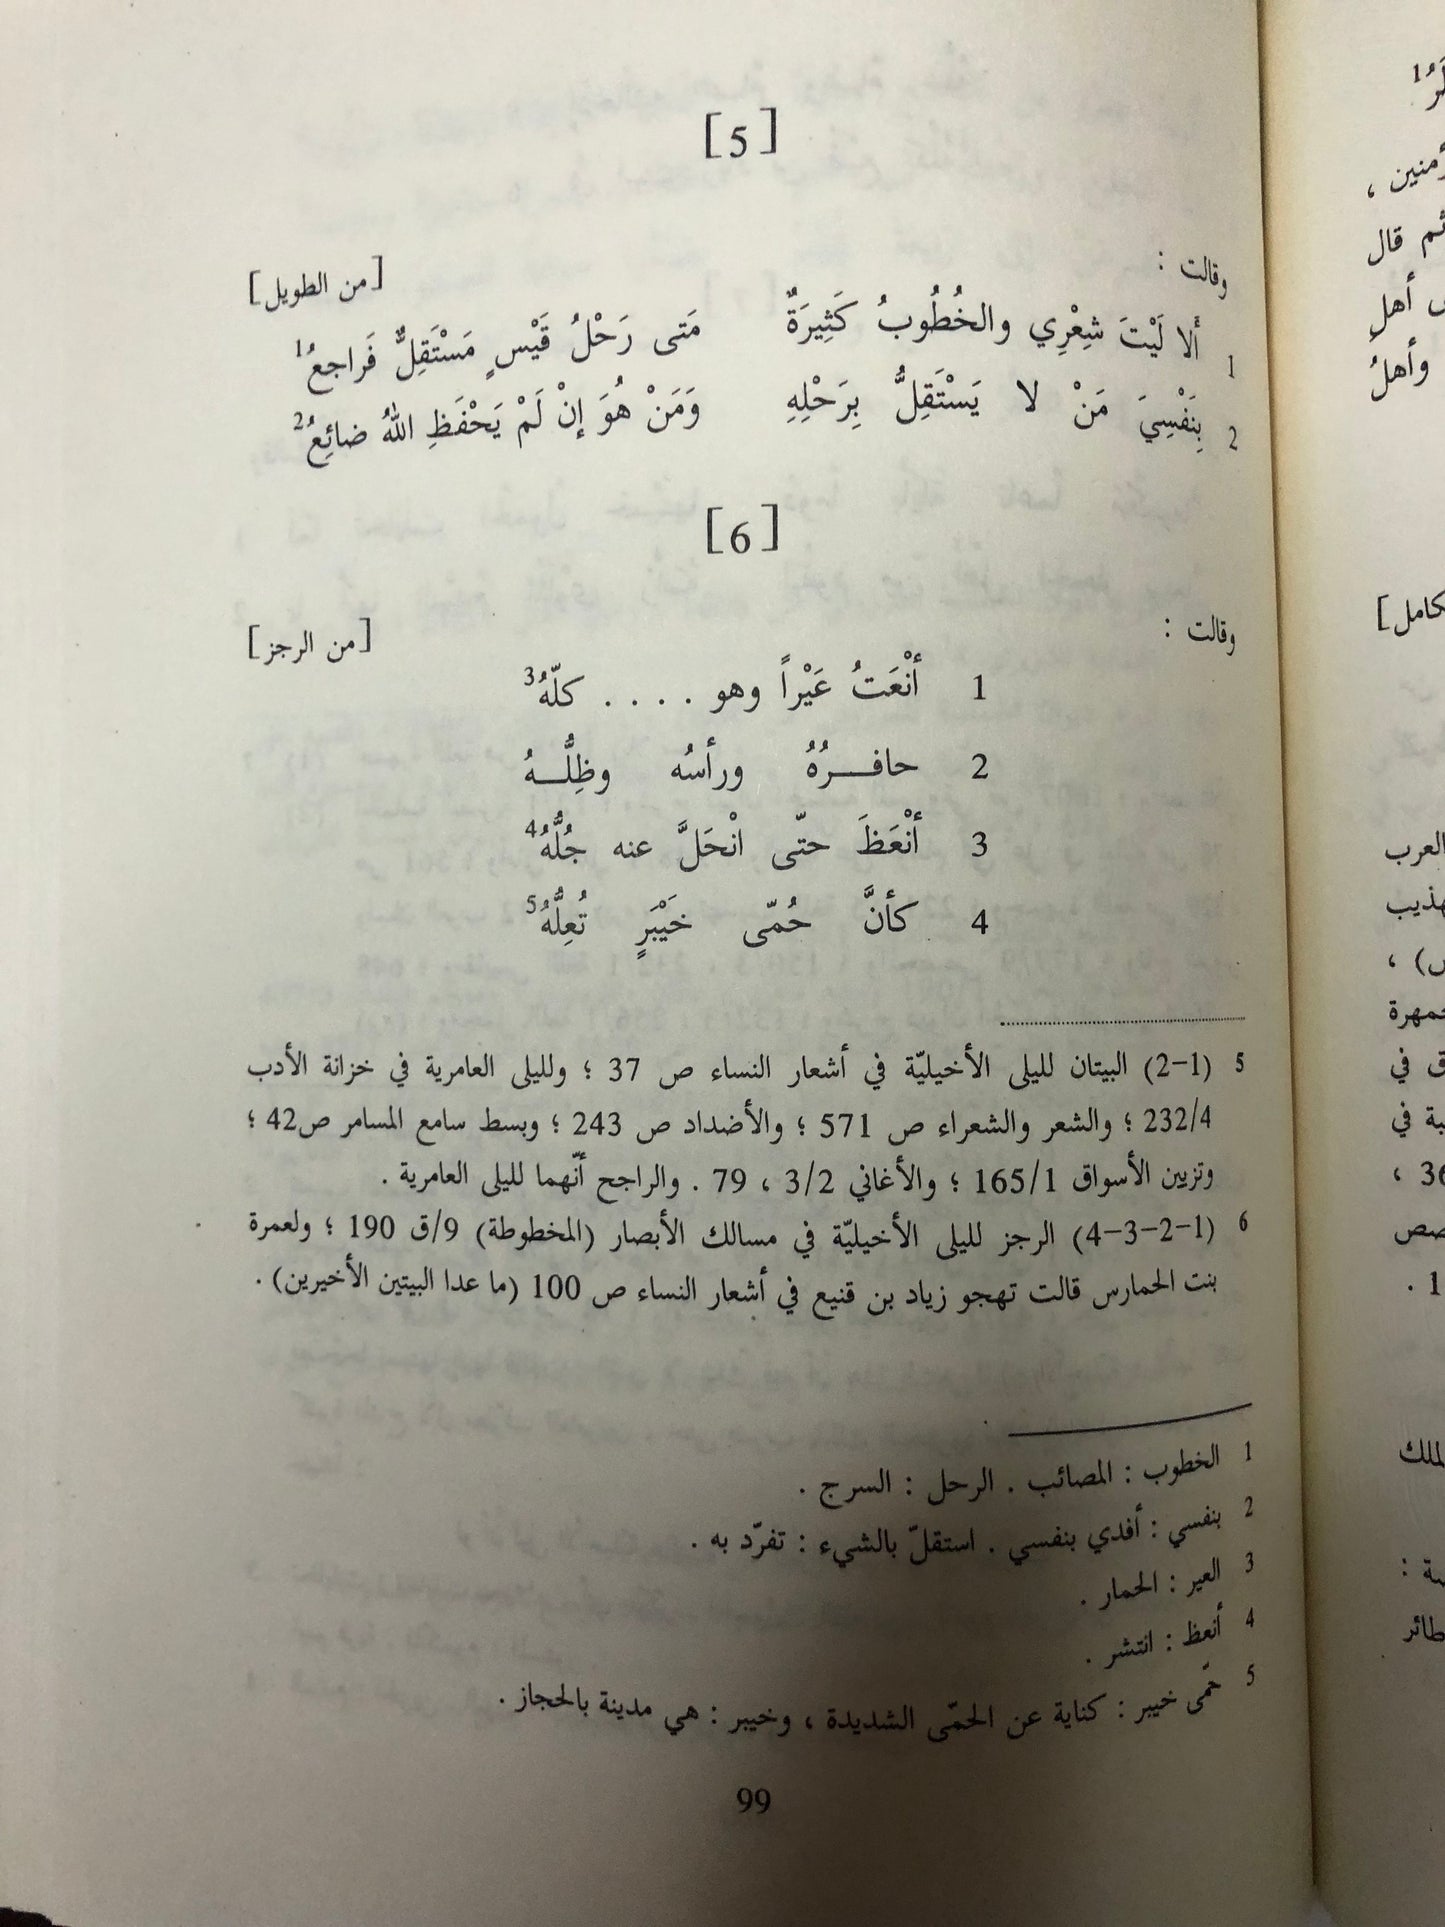 [5]
وقالت :
[من الطويل]
1 أَلا لَيْتَ شِعْرِي والخُطُوبُ كَثِيرَةٌ مَتى رَحْلُ قَيْسٍ مَسْتَقِلٌّ فَراجعُ1
2 بِنَفْسِيَ مَنْ لا يَسْتَقِلُّ بِرَحْلِهِ وَمَنْ هُوَ إنْ لَمْ يَحْفَظِ اللهُ ضائِعُ2
[6]
وقالت :
[من الرجز]
1 أنْعَتُ عَيْراً وهو . . . . كلّهُ3
2 حافـــرُهُ ورأسُه وظِلُّـــهُ
3 أنْعَظَ حتّى انْحَلَّ عنه جُلُّهُ4
4 كأنَّ حُمّى خَيْبَرٍ تُعِلُّهُ5
5 (1-2) البيتان لليلى الأخيليّة في أشعار النساء ص 37 ؛ ولليلى العامرية في خزانة الأدب
232/4 ؛ والشعر والشعراء ص 571 ؛ والأضداد ص 243 ؛ وبسط سامع المسامر ص42 ؛
وتزيين الأسواق 165/1 ؛ والأغاني 3/2 ، 79 . والراجح أنّهما لليلى العامرية .
6 (1-2-3-4) الرجز لليلى الأخيليّة في مسالك الأبصار (المخطوطة) 9/ق 190 ؛ ولعمرة
بنت الحمارس قالت تهجو زياد بن قنيع في أشعار النساء ص 100 (ما عدا البيتين الأخيرين) .
1 الخطوب : المصائب . الرحل : السرج .
2 بنفسي : أفدي بنفسي . استقلّ بالشيء : تفرّد به .
3 العير : الحمار .
4 أنعظ : انتشر .
5 حمّى خيبر : كناية عن الحمّى الشديدة ، وخيبر : هي مدينة بالحجاز .
99
ثم قال
أهلِ
وأهلُ
العرب
في
في
36 ،
1 .